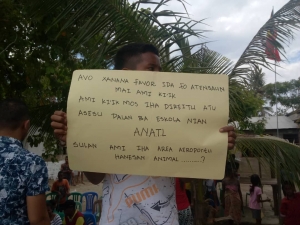 AVO XANANA FAVOR IDA FO ATENSAUN
MAI AMI KI'IK
AMI KI'IK MOS IHA DIREITU ATU
ASESU DALAN BA ESKOLA NIAN
AMI
SULAN AMI IHA AREA AEROPORTU
HANESAN ANIMAL ........?